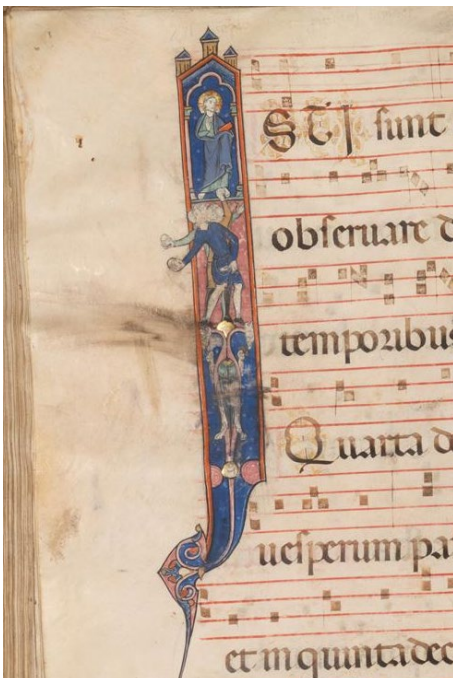 STI sunt
obseruare d
temporibus
Quarta d
uesperum pa
et in quintadec